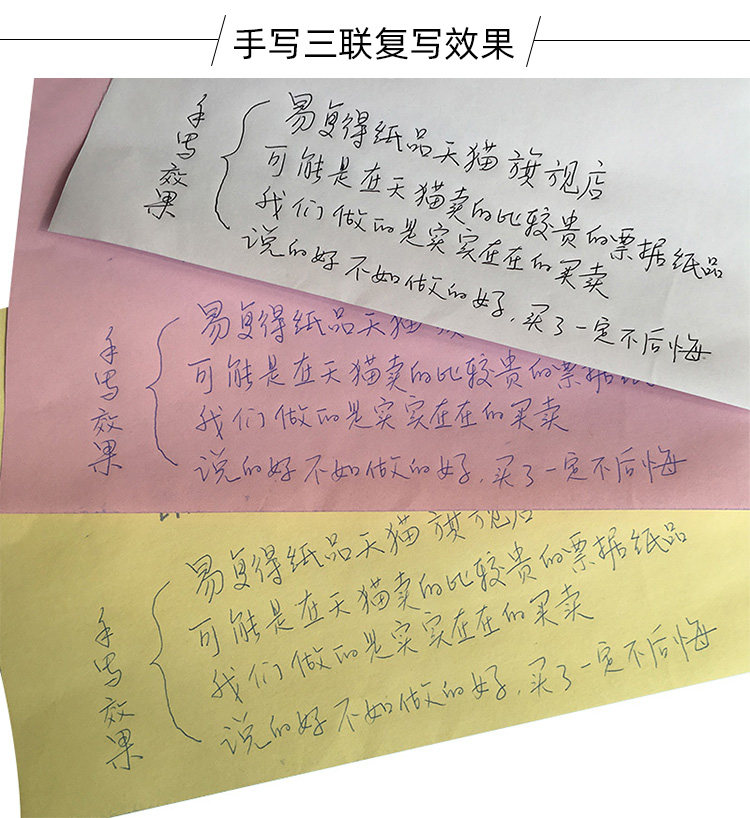 手写三联复写效果
手写效果
易复得纸品天猫旗舰店
可能是在天猫卖的比较贵的票据纸品
我们做的是实实在在的买卖
说的好不如做的好，买了一定不后悔
手写效果
易复得纸品天猫
可能是在天猫卖的比较贵的票据
我们做的是实实在在的买卖
说的好不如做的好，买了一定不后悔
手写效果
易复得纸品天猫旗舰店
可能是在天猫卖的比较贵的票据纸品
我们做的是实实在在的买卖
说的好不如做的好，买了一定不后悔